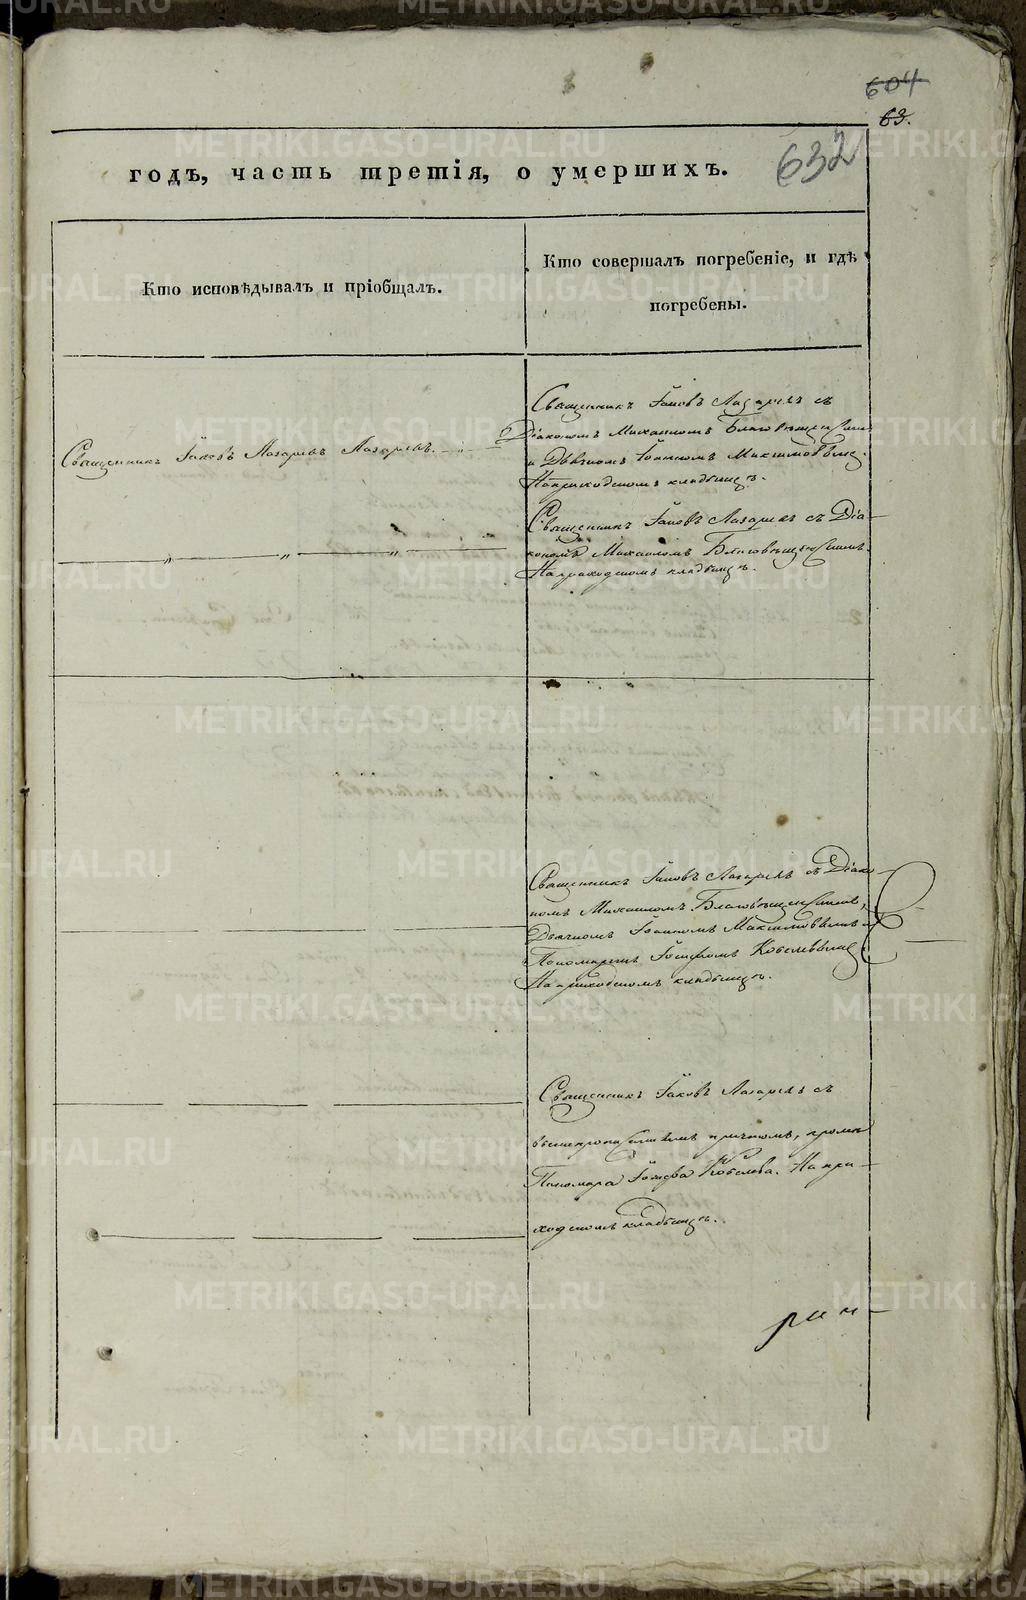 604
63.
632
годъ, часть третія, о умершихъ.
Кто исповѣдывалъ и пріобщалъ.
Кто совершалъ погребеніе, и гдѣ
погребены.
Священникъ Іаковъ Лазаревъ Лазаревъ.
Священникъ Іаковъ Лазаревъ съ
Діакономъ Михаиломъ Благовѣщенскимъ
и Дьячкомъ Іоанномъ Максимовымъ.
На приходскомъ кладбищѣ.
Священникъ Іаковъ Лазаревъ съ Діа-
кономъ Михаиломъ Благовѣщенскимъ.
На приходскомъ кладбищѣ.
Священникъ Іаковъ Лазаревъ съ Діако-
номъ Михаиломъ Благовѣщенскимъ,
Дьячкомъ Іоанномъ Максимовымъ и
Пономаремъ
На приходскомъ кладбищѣ.
Священникъ Іаковъ Лазаревъ съ
причтомъ, кромѣ
Пономаря Кобелева. На при-
ходскомъ кладбищѣ.
METRIKI.GASO-URAL.RU